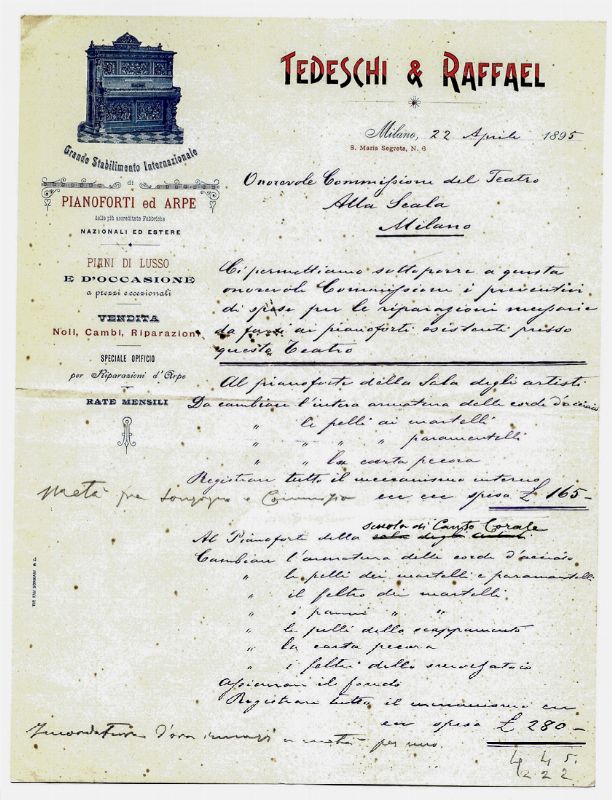 TEDESCHI & RAFFAEL
Milano, 22 Aprile 1895
S. Maria Segreta, N. 6
Grande Stabilimento Internazionale
di
PIANOFORTI ed ARPE
delle più accreditate Fabbriche
NAZIONALI ED ESTERE
PIANI DI LUSSO
E D'OCCASIONE
a prezzi eccezionali
VENDITA
Noli, Cambi, Riparazioni
SPECIALE OPIFICIO
per Riparazioni d'Arpe
RATE MENSILI
Onorevole Commissione del Teatro
Alla Scala
Milano
Ci permettiamo sottoporre a questa
onorevole Commissione i preventivi
di spese per le riparazioni necessarie
da farsi ai pianoforti esistenti presso
questo Teatro
Al pianoforte della Sala degli artisti
Da cambiare l'intera armatura delle corde d'acciaio
" le pelli ai martelli
" " " paramartelli
" " la carta pecora
Registrare tutto il meccanismo interno
con spesa £ 165-
Metà fra Sonzogno e Commissione
Al Pianoforte della scuola di Canto Corale
Cambiare l'armatura delle corde d'acciaio
" le pelli dei martelli e paramartelli
" il feltro dei martelli
" i panni " "
" le pelli dello scappamento
" la carta pecora
" i feltri dello
il fondo
Registrare tutto il meccanismo con
spesa £ 280-
d'ora innanzi a metà per uno
445.
222.